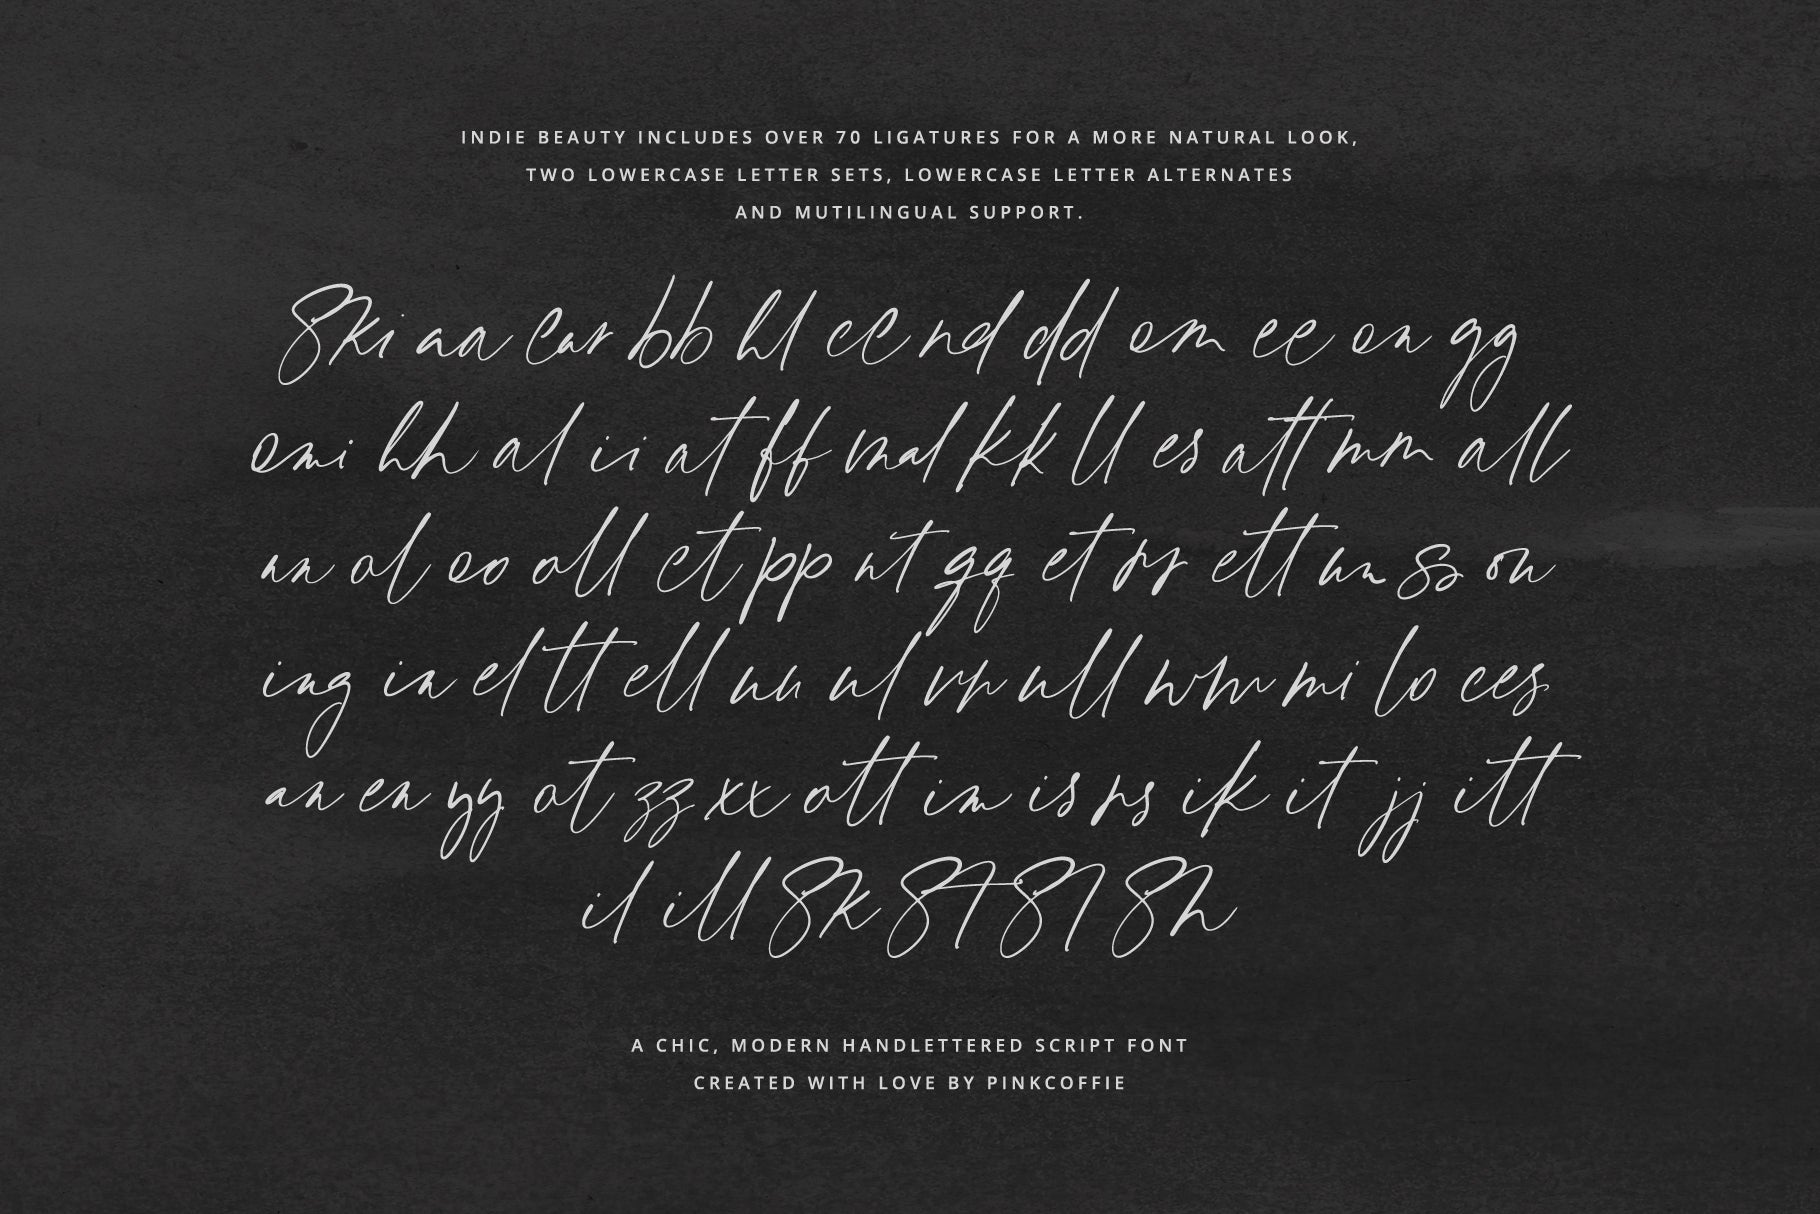 INDIE BEAUTY INCLUDES OVER 70 LIGATURES FOR A MORE NATURAL LOOK,
TWO LOWERCASE LETTER SETS, LOWERCASE LETTER ALTERNATES
AND MUTILINGUAL SUPPORT.
Ski aa ear bb ht cc nd dd om ee on gg
omi hh al ii at ff nd kk ll es att mm all
an ol oo oll ct pp nt qq et rr ett un ss on
ing in el tt ell uu ul vv ull ww mi lo ces
an en yy ot zz xx ott im is rs ik it jj itt
il ill Sk St Sl Sh
A CHIC, MODERN HANDLETTERED SCRIPT FONT
CREATED WITH LOVE BY PINKCOFFIE